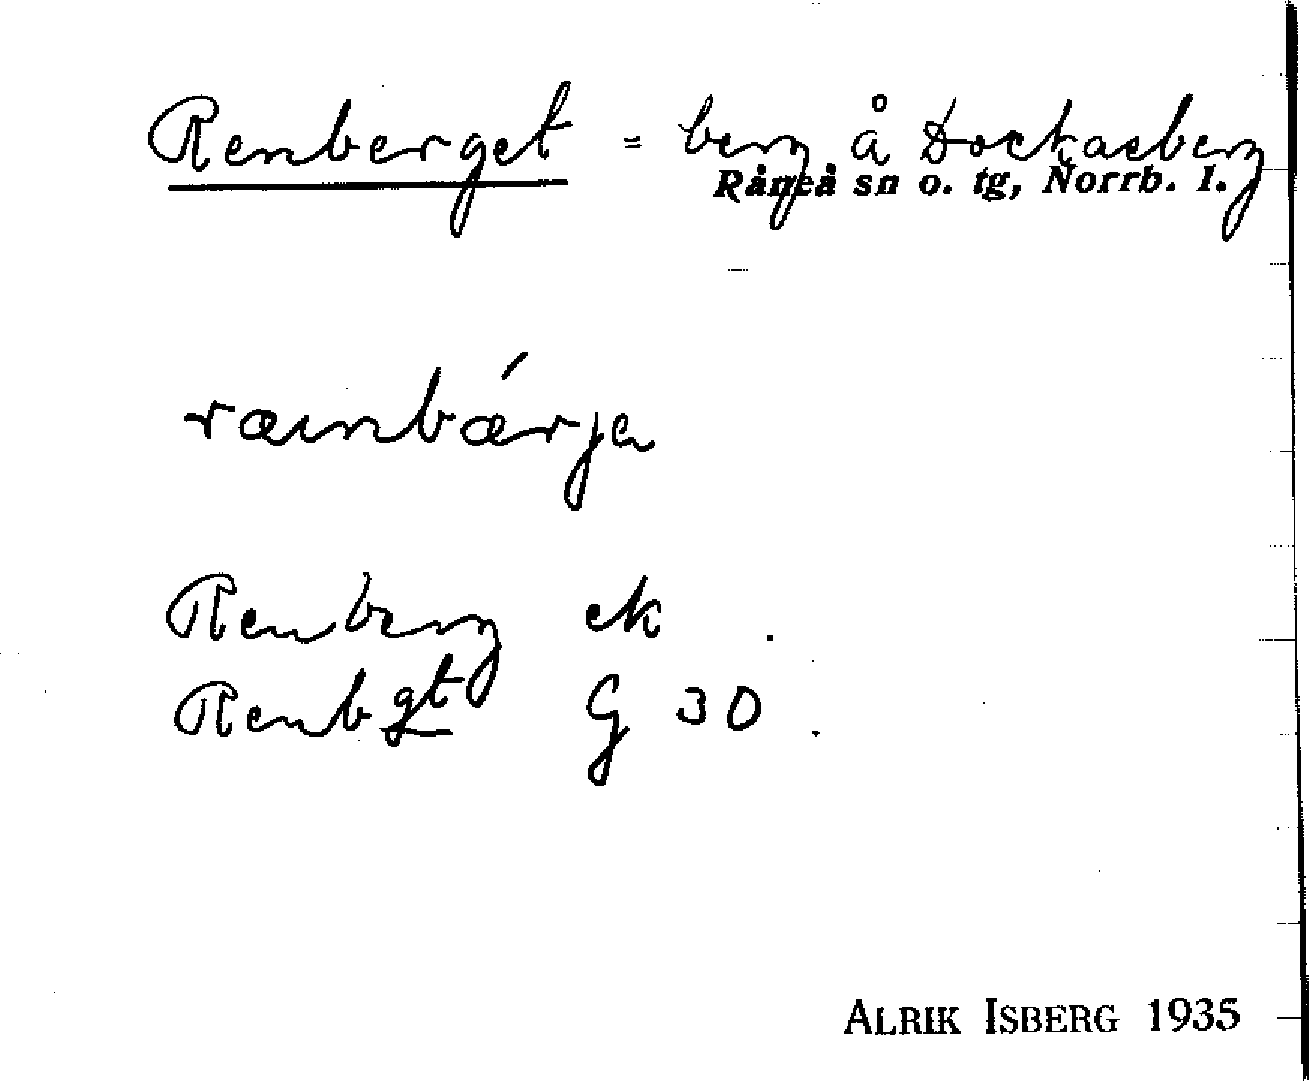 Renberget = berg å Dockasberg
Råneå sn o. tg, Norrb. l.
ræinbǽrje
Renberg ek
Renbgt G 30
ALRIK ISBERG 1935